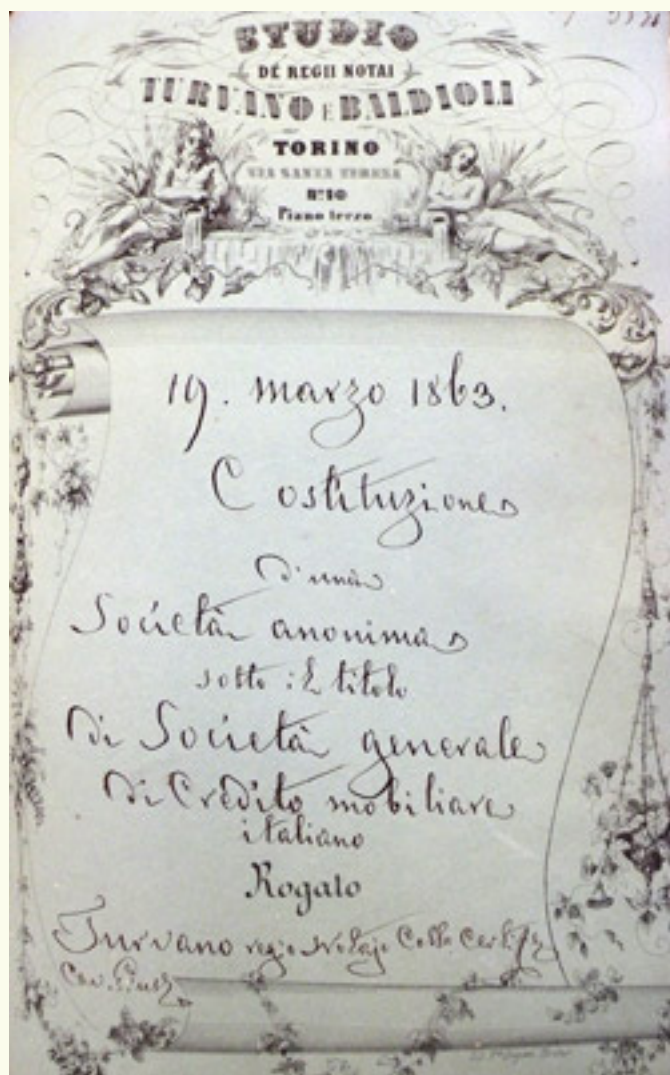 STUDIO
DE REGII NOTAI
TURVANO E BALDIOLI
TORINO
VIA SANTA TERESA
N.° 10
Piano terzo
19. marzo 1863.
Costituzione
d'una
Società anonima
sotto il titolo
di Società generale
di Credito mobiliare
italiano
Rogato
Turvano regio Notajo Coll.
Cav.